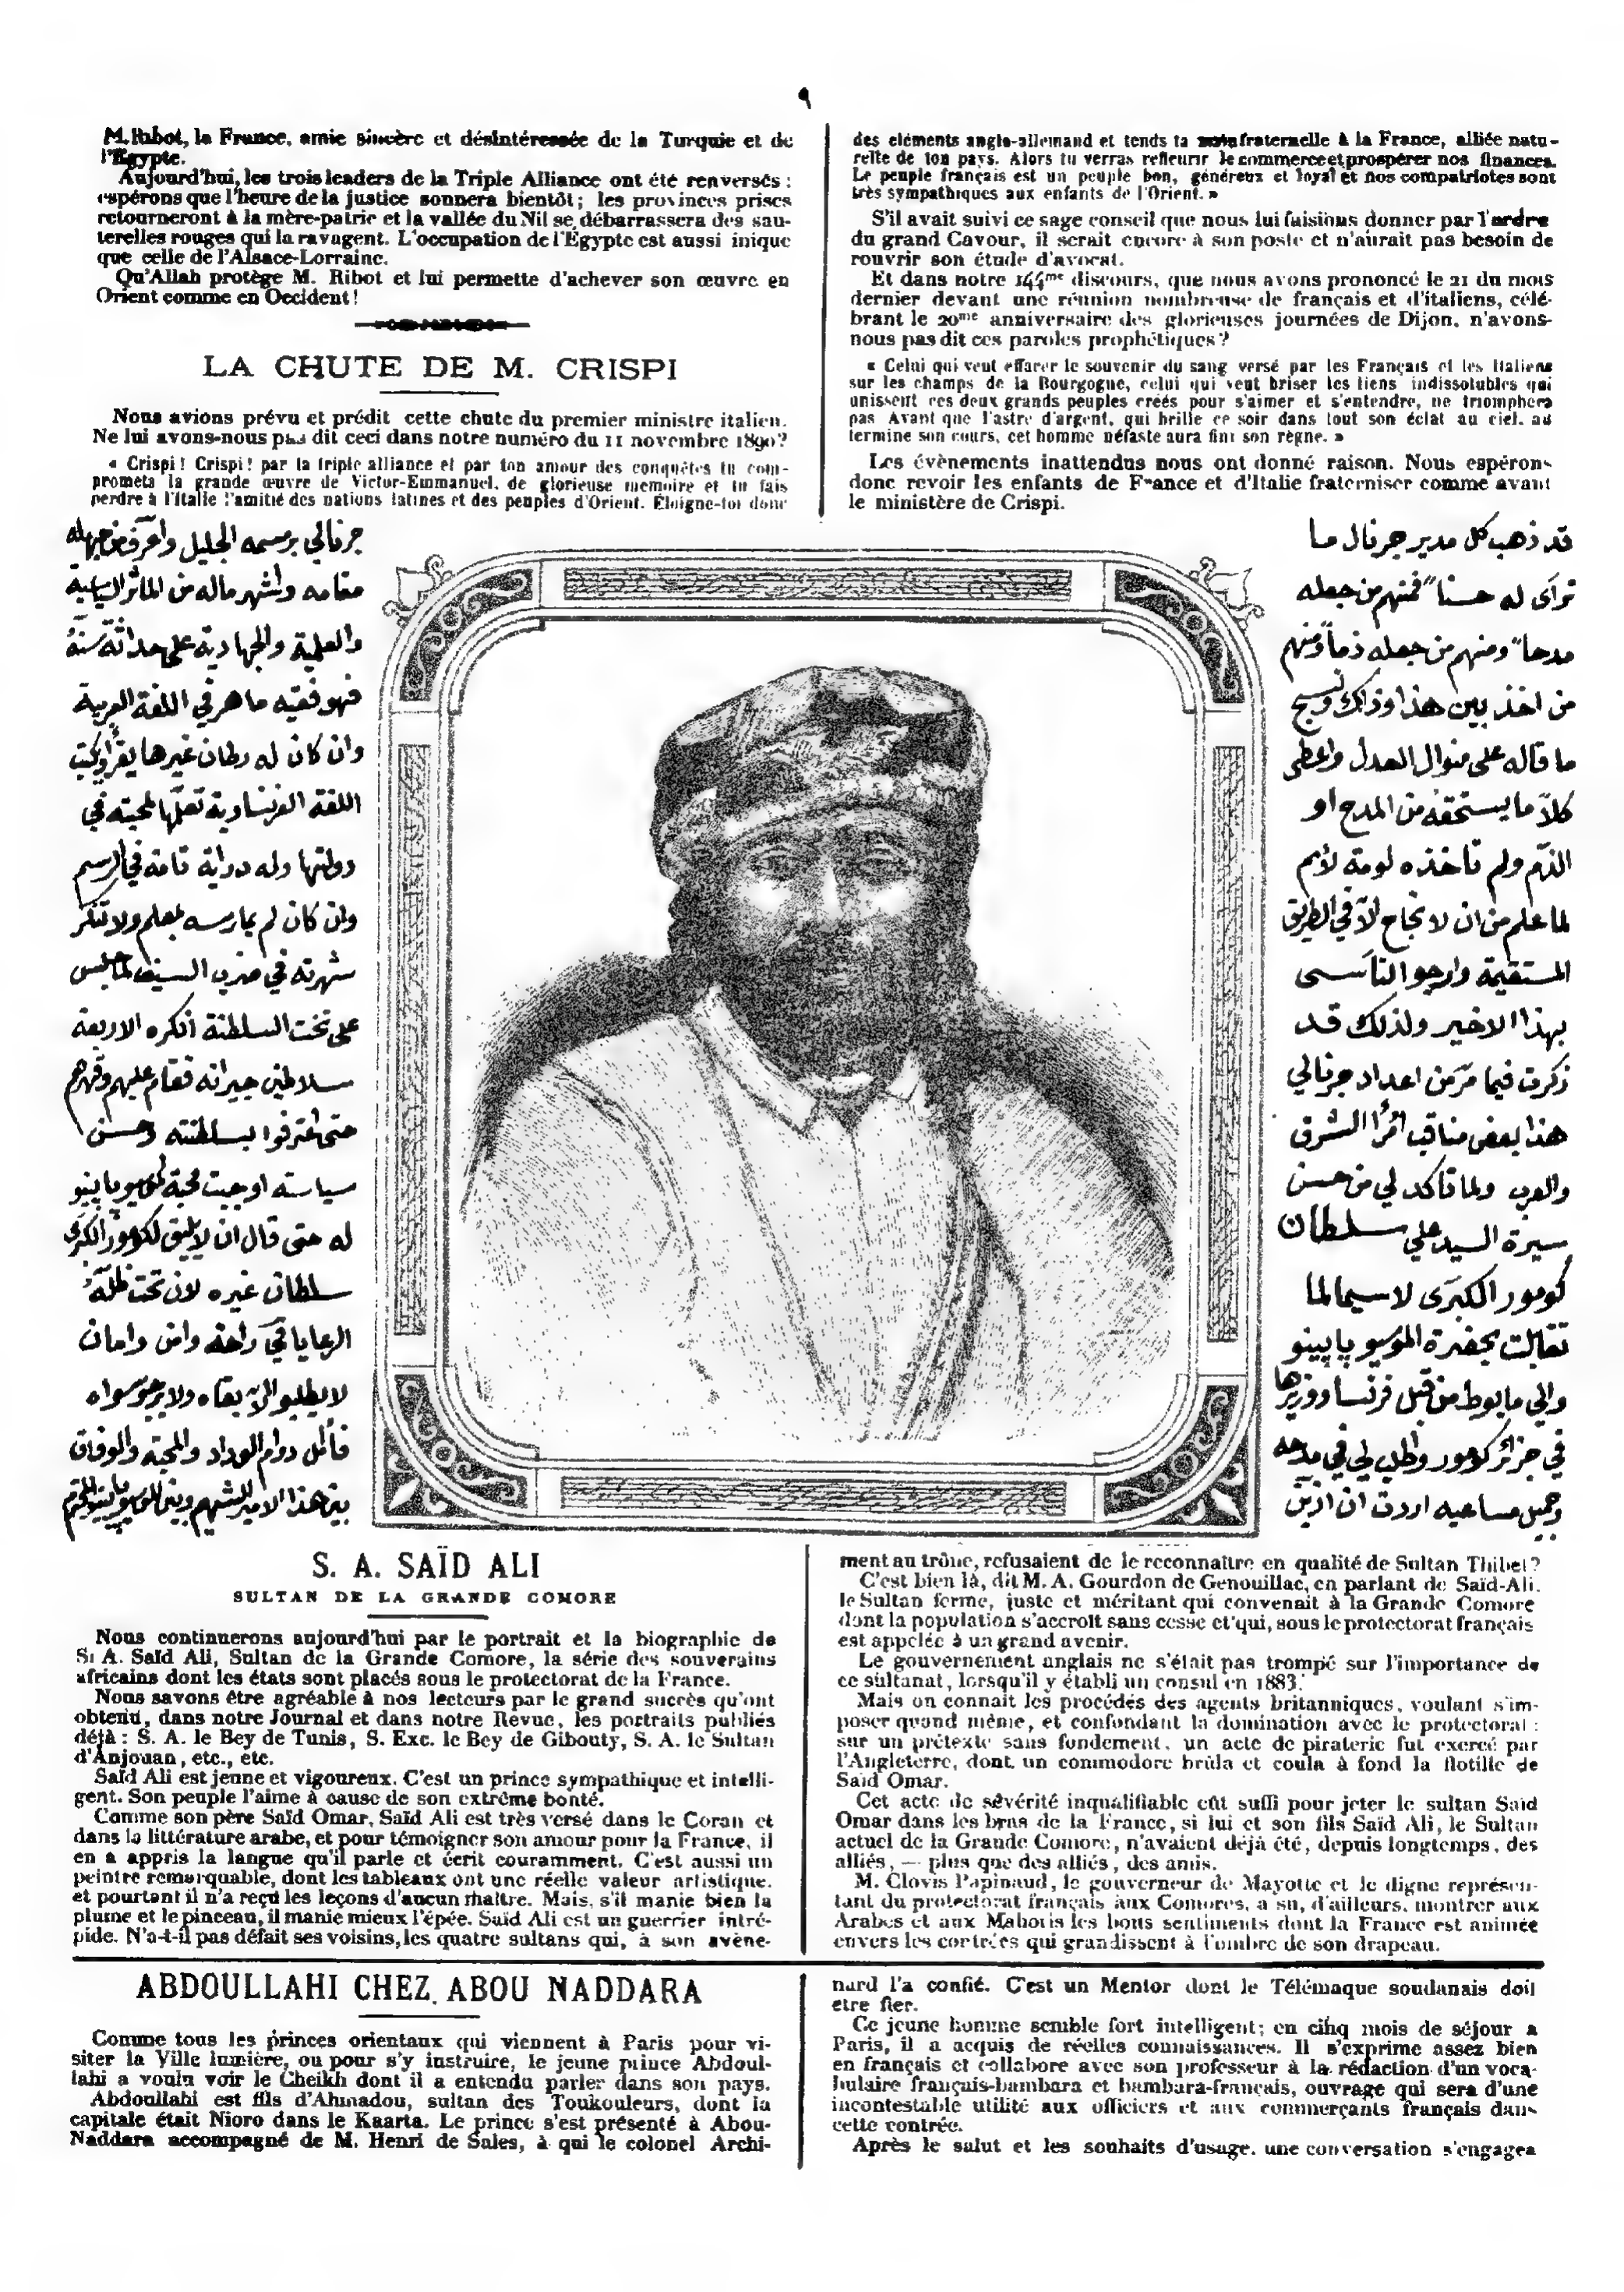 ٩
M. Ribot, la France, amie sincère et désintéressée de la Turquie et de
l'Égypte.
Aujourd'hui, les trois leaders de la Triple Alliance ont été renversés :
espérons que l'heure de la justice sonnera bientôt ; les provinces prises
retourneront à la mère-patrie et la vallée du Nil se débarrassera des sau-
terelles rouges qui la ravagent. L'occupation de l'Égypte est aussi inique
que celle de l'Alsace-Lorraine.
Qu'Allah protège M. Ribot et lui permette d'achever son œuvre en
Orient comme en Occident !
LA CHUTE DE M. CRISPI
Nous avions prévu et prédit cette chute du premier ministre italien.
Ne lui avons-nous pas dit ceci dans notre numéro du 11 novembre 1890 ?
« Crispi ! Crispi ! par la triple alliance et par ton amour des conquêtes tu com-
promets la grande œuvre de Victor-Emmanuel, de glorieuse memoire et tu fais
perdre à l'Italie l'amitié des nations latines et des peuples d'Orient. Éloigne-toi donc
des eléments anglo-allemand et tends ta main fraternelle à la France, alliée natu-
relle de ton pays. Alors tu verras refleurir le commerce et prospérer nos finances.
Le peuple français est un peuple bon, généreux et loyal et nos compatriotes sont
très sympathiques aux enfants de l'Orient. »
S'il avait suivi ce sage conseil que nous lui faisions donner par l'ordre
du grand Cavour, il serait encore à son poste et n'aurait pas besoin de
rouvrir son étude d'avocat.
Et dans notre 144me discours, que nous avons prononcé le 21 du mois
dernier devant une réunion nombreuse de français et d'italiens, célé-
brant le 20me anniversaire des glorieuses journées de Dijon, n'avons-
nous pas dit ces paroles prophétiques ?
« Celui qui veut effacer le souvenir du sang versé par les Français et les Italiens
sur les champs de la Bourgogne, celui qui veut briser les liens indissolubles qui
unissent ces deux grands peuples créés pour s'aimer et s'entendre, ne triomphera
pas Avant que l'astre d'argent, qui brille ce soir dans tout son éclat au ciel, ait
termine son cours, cet homme néfaste aura fini son règne. »
Les évènements inattendus nous ont donné raison. Nous espérons
donc revoir les enfants de France et d'Italie fraterniser comme avant
le ministère de Crispi.
قد ذهب كل مدير جرنال ما
ترآى له حسنا" فمنهم من جعله
مدحا" ومنهم من جعله ذما" ومنهم
من اخذ بين هذا وذاك ونسج
ما قاله على منوال العدل واعطى
كلاّ ما يستحقه من المدح او
الذم ولم تاخذه لومة لائم
لما علم من ان لا نجاح الاّ في الطريق
المستقيمة وارجو التاسى
بهذا الاخير ولذلك قد
ذكرت فيما مرّ من اعداد جرنالي
هذا بعض مناقب أمرا الشرق
والعرب ولما تاكد لي من حسن
سيرة السيد علي سلطان
كومور الكبرى لاسيما لما
تقابلت بحضرة الموسيو پاپينو
والي مايوط من قبل فرنسا ووزيرها
في جزائر كومور وأطنب لي في مدحه
وجميل مساعيه اردت ان ازين
جرنالي برسمه الجليل وأعرّف من جهله
مقامه وأشهر ماله من المآثر السياسية
والعلمية والجهادية على حداثة سنّه
فهو فقيه ماهر في اللغة العربية
وان كان له رطان غيرها يقرأ ويكتب
اللغة الفرنساوية تعلّمها لمحبته في
دولتها وله دراية تامة في الرسم
وان كان لم يمارسه بمعلم ولا تنكر
شهرته في ضرب السيف لما جلس
على تخت السلطنة انكره الاربعة
سلاطين جيرانه فقام عليهم وقهرهم
حتى اعترفوا بسلطنته وحسن
سياسته اوجبت محبة الموسيو پاپينو
له حتى قال ان لا يليق لكومور الكبرى
سلطان غيره لان تحت ظله
الرعايا في راحة وامن وامان
لا يطلبو الا بقاه ولا يرجو سواه
فأمل دوام الوداد والمحبة والوفاق
بين هذا الامير الشهم وبين الموسيو پاپينو المحترم
S. A. SAÏD ALI
SULTAN DE LA GRANDE COMORE
Nous continuerons aujourd'hui par le portrait et la biographie de
S. A. Saïd Ali, Sultan de la Grande Comore, la série des souverains
africains dont les états sont placés sous le protectorat de la France.
Nous savons être agréable à nos lecteurs par le grand succès qu'ont
obtenu, dans notre Journal et dans notre Revue, les portraits publiés
déjà : S. A. le Bey de Tunis, S. Exc. le Bey de Gibouty, S. A. le Sultan
d'Anjouan, etc., etc.
Saïd Ali est jeune et vigoureux. C'est un prince sympathique et intelli-
gent. Son peuple l'aime à cause de son extrême bonté.
Comme son père Saïd Omar, Saïd Ali est très versé dans le Coran et
dans la littérature arabe, et pour témoigner son amour pour la France, il
en a appris la langue qu'il parle et écrit couramment. C'est aussi un
peintre remarquable, dont les tableaux ont une réelle valeur artistique.
et pourtant il n'a reçu les leçons d'aucun maître. Mais, s'il manie bien la
plume et le pinceau, il manie mieux l'épée. Saïd Ali est un guerrier intré-
pide. N'a-t-il pas défait ses voisins, les quatre sultans qui, à son avène-
ment au trône, refusaient de le reconnaître en qualité de Sultan Thibel ?
C'est bien là, dit M. A. Gourdon de Genouillac, en parlant de Saïd-Ali.
le Sultan ferme, juste et méritant qui convenait à la Grande Comore
dont la population s'accroît sans cesse et qui, sous le protectorat français
est appelée à un grand avenir.
Le gouvernement anglais ne s'était pas trompé sur l'importance de
ce sultanat, lorsqu'il y établi un consul en 1883.
Mais on connait les procédés des agents britanniques, voulant s'im-
poser quand même, et confondant la domination avec le protectorat :
sur un prétexte sans fondement, un acte de piraterie fut exercé par
l'Angleterre, dont un commodore brûla et coula à fond la flotille de
Saïd Omar.
Cet acte de sévérité inqualifiable eût suffi pour jeter le sultan Saïd
Omar dans les bras de la France, si lui et son fils Saïd Ali, le Sultan
actuel de la Grande Comore, n'avaient déjà été, depuis longtemps, des
alliés, — plus que des alliés, des amis.
M. Clovis Papinaud, le gouverneur de Mayotte et le digne représen-
tant du protectorat français aux Comores, a su, d'ailleurs, montrer aux
Arabes et aux Mahoris les bons sentiments dont la France est animée
envers les contrées qui grandissent à l'ombre de son drapeau.
ABDOULLAHI CHEZ ABOU NADDARA
Comme tous les princes orientaux qui viennent à Paris pour vi-
siter la Ville lumière, ou pour s'y instruire, le jeune prince Abdoul-
lahi a voulu voir le Cheikh dont il a entendu parler dans son pays.
Abdoullahi est fils d'Ahmadou, sultan des Toukouleurs, dont la
capitale était Nioro dans le Kaarta. Le prince s'est présenté à Abou-
Naddara accompagné de M. Henri de Sales, à qui le colonel Archi-
nard l'a confié. C'est un Mentor dont le Télémaque soudanais doit
etre fier.
Ce jeune homme semble fort intelligent ; en cinq mois de séjour a
Paris, il a acquis de réelles connaissances. Il s'exprime assez bien
en français et collabore avec son professeur à la rédaction d'un voca-
bulaire français-bambara et bambara-français, ouvrage qui sera d'une
incontestable utilité aux officiers et aux commerçants français dans
cette contrée.
Après le salut et les souhaits d'usage, une conversation s'engagea